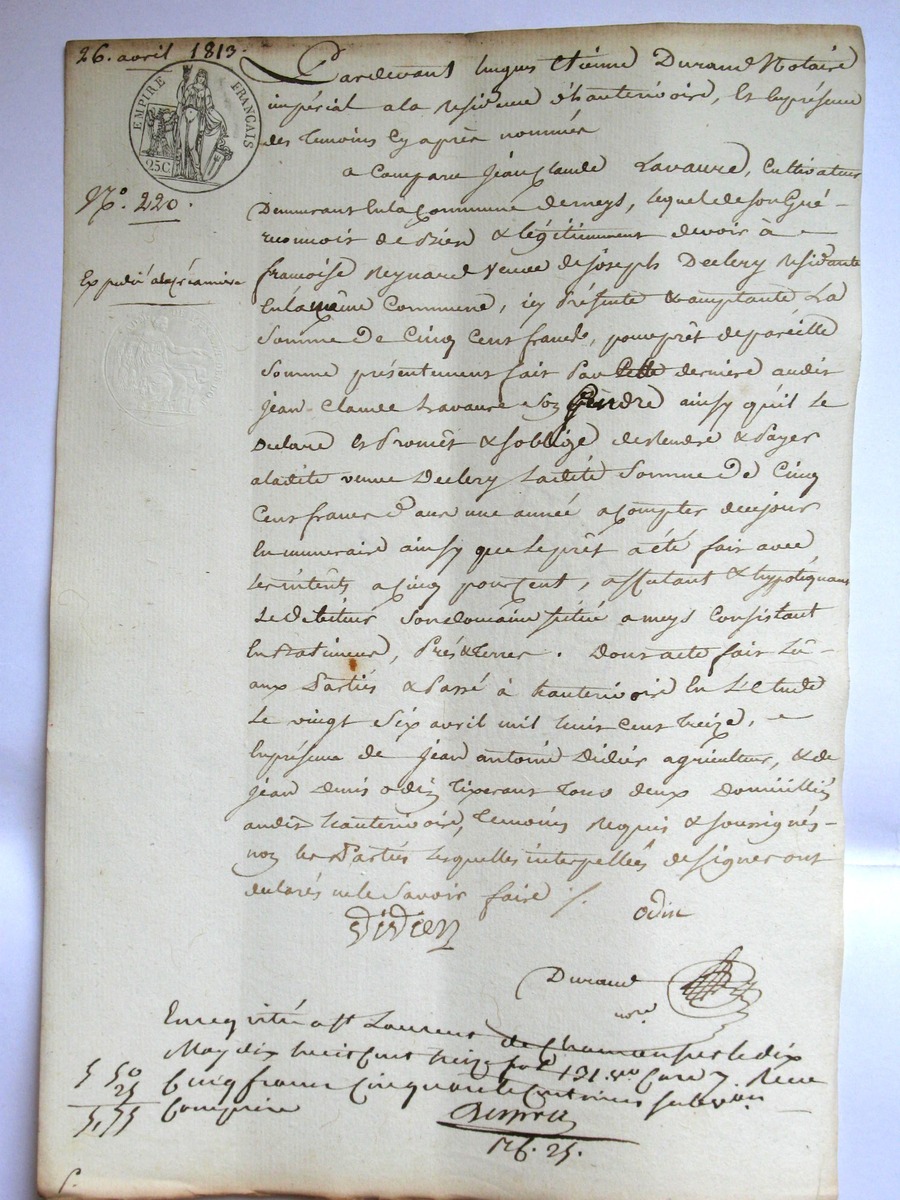 26. avril 1813.
EMPIRE FRANÇAIS
25C
N.° 220.
Expedié a la créancière
Pardevant hugues Etienne Durand Notaire
impérial a la residence d'hauterivoire, Et En présence
des Temoins Cy après nommés
a Comparu Jean Claude Lavaure, Cultivateur
Demeurant En la Commune de meys, lequel de son Gré
reconnoit de Bien & légitimement devoir à
francoise Reynard veuve de joseph Declery Residante
En la même Commune, icy Présente & acceptante La
Somme De Cinq Cens francs, pour prêt de pareille
Somme présentement fait Par Cette derniere audit
Jean Claude Lavaure Son Gendre ainsy qu'il le
Declare et Promet & s'oblige de Rendre & Payer
a ladite veuve Declery Ladite Somme De Cinq
Cens francs Dans une année a Compter de ce jour
En numeraire ainsy que Le prêt a été fait avec
Les intérêts a Cinq pour Cent, affectant & hypotéquant
Le Débiteur Son domaine situé a meys Consistant
En Batimens, Prés & terres. Dont acte fait Lû
aux Parties & Passé à hauterivoire En L'Etude
Le vingt Six avril mil huit Cent treize,
En présence de Jean antoine Didier agriculteur, & de
Jean Denis odin Tisserant Tous deux Domiciliés
audit hauterivoire, Temoins Requis & soussignés
non les Parties Lesquelles interpellées de signer ont
declarés ne le Savoir faire /.
Didier
odin
Durand
no.re
Enregistré a St Laurent de Chamousset le dix
May dix huit cent treize fol 131 v.o Case 7 Recu
5 50
Cinq francs Cinquante Centimes subvon
25
5,75
Comprise
Rf. 25.